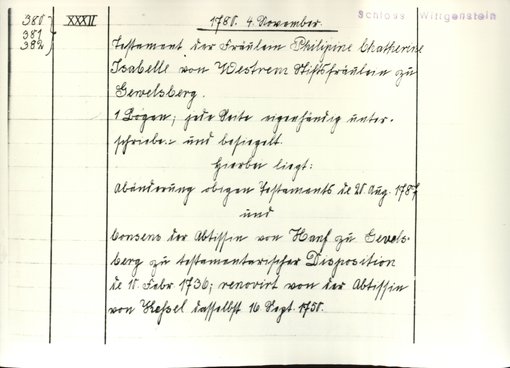 380 381 382
XXXII
Schloss Wittgenstein
1780. 4. November.
Testament der Fräulein Philipine Chatherine
Isabelle von Westrem Stiftsfräulein zu
Gevelsberg.
1 Bogen; jede Seite eigenhändig unter-
schrieben und besiegelt.
Hierbei liegt:
Abänderung obigen Testaments de Aug. 1787
und
Consens der Abtissin von Hanf zu Gevels-
berg zu testamentarischer Disposition
de Febr 1736; renovirt von der Abtissin
von Keßel dasselbst 16 Sept. 1750.